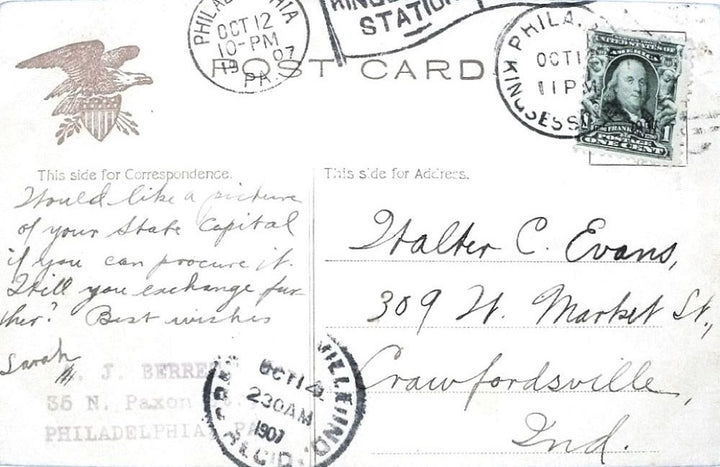 PHILADELPHIA
OCT 12
10-PM
1907
PA.
STATION
POST CARD
PHILA.
OCT 12
11 PM
KINGSESSING
UNITED STATES OF
AMERICA
FRANKLIN
POSTAGE
1
ONE CENT
This side for Correspondence.
Would like a picture
of your State Capital
if you can procure it.
Will you exchange fur-
ther? Best wishes
Sarah
J. BERRE
35 N. Paxon St.
PHILADELPHIA, PA.
This side for Address.
Walter C. Evans,
309 W. Market St.,
Crawfordsville,
Ind.
OCT 14
230AM
1907
REC'D.